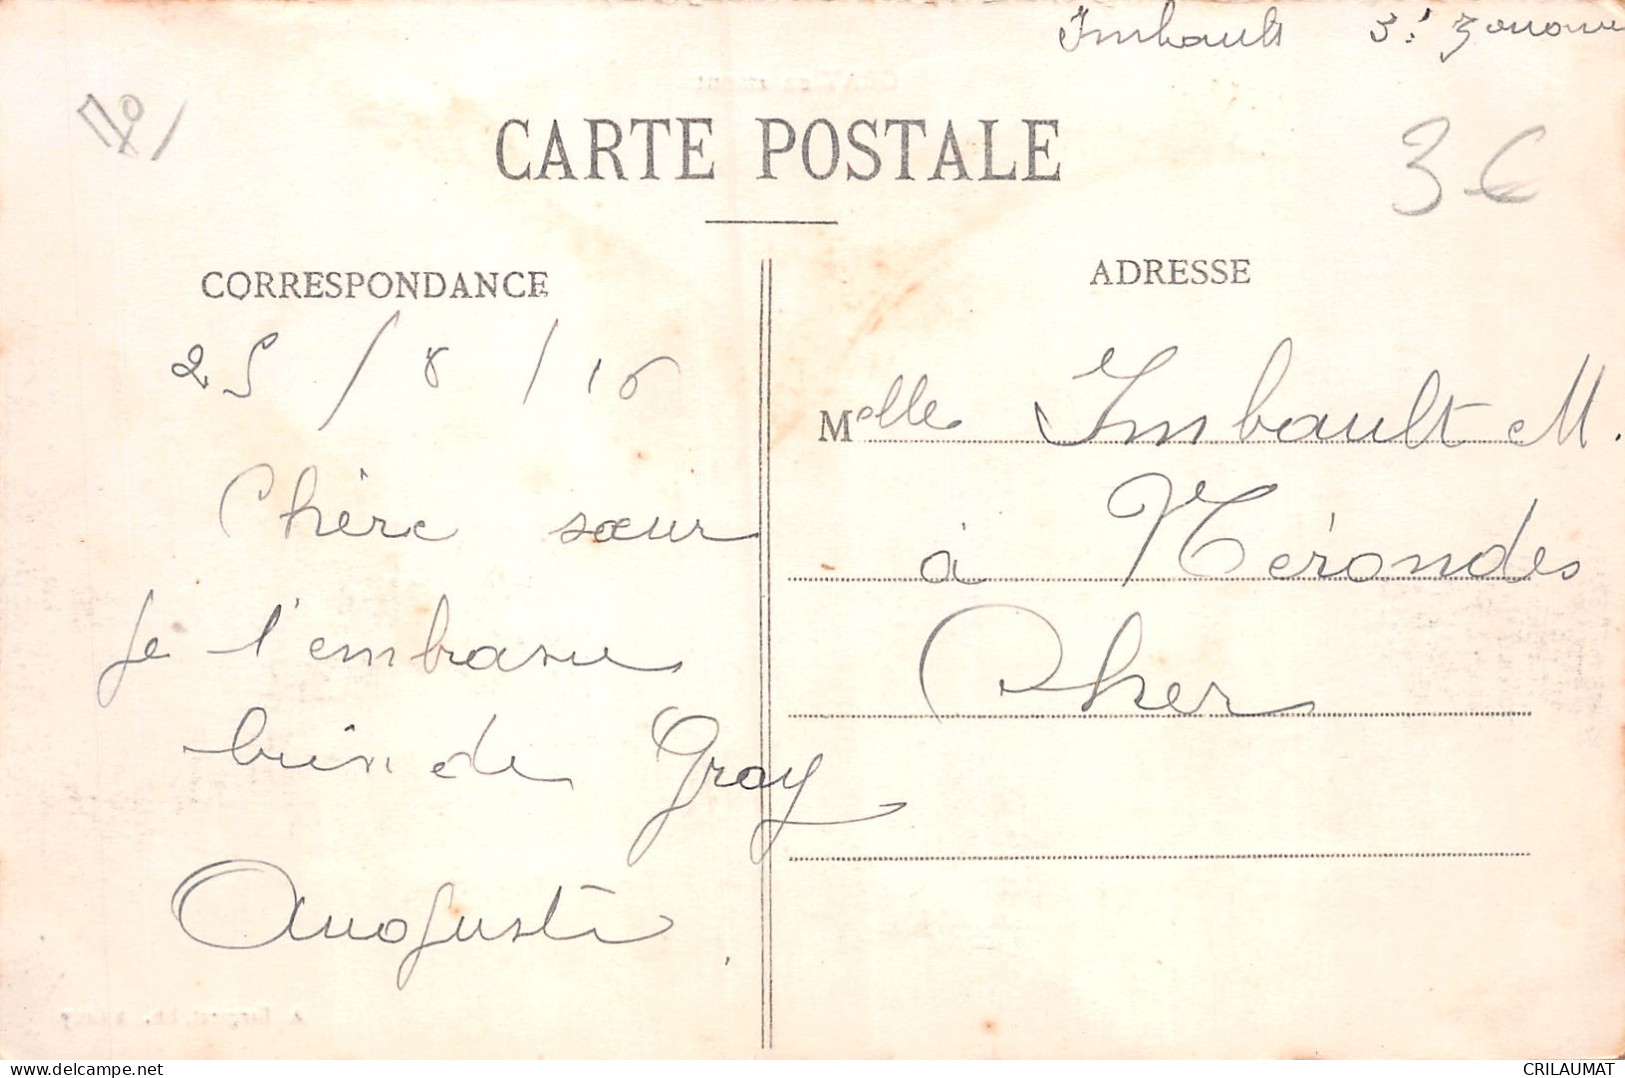 Imbault 3e Zouave
70/
CARTE POSTALE
3€
CORRESPONDANCE
25/8/16
Chère sœur
je t'embrasse
bien de Gray
Auguste
ADRESSE
Melle Imbault M.
à Nérondes
Cher
delcampe.net
CRILAUMAT